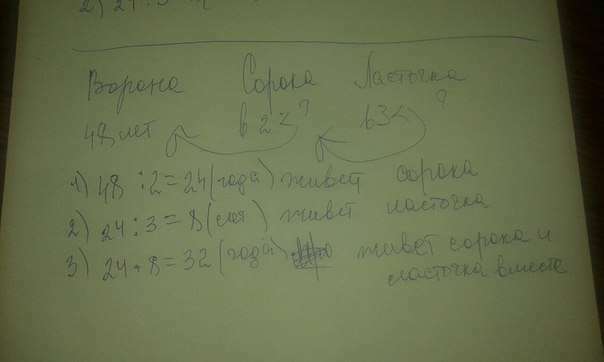 2) 24 : 3
Ворона Сорока Ласточка
48 лет в 2< ? в 3< ?
1) 48 : 2 = 24 (года) живет сорока
2) 24 : 3 = 8 (лет) живет ласточка
3) 24 + 8 = 32 (года) живет сорока и
ласточка вместе